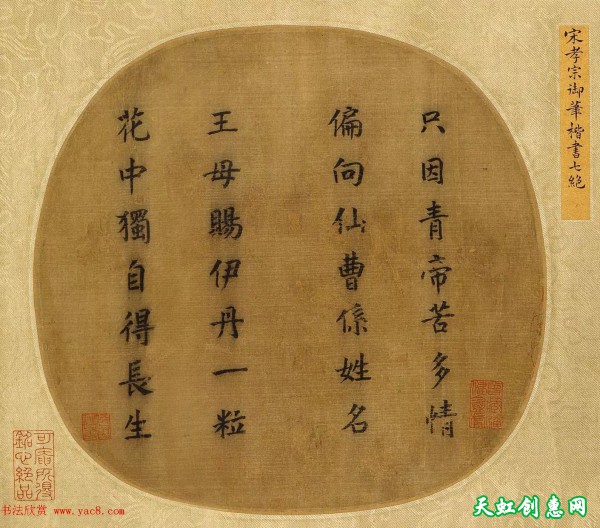 只因青帝苦多情
偏向仙曹係姓名
王母賜伊丹一粒
花中獨自得長生
宋孝宗御筆楷書七絕
可齋所得
銘心絕品
书法欣赏 www.yac8.com
天虹创惠网